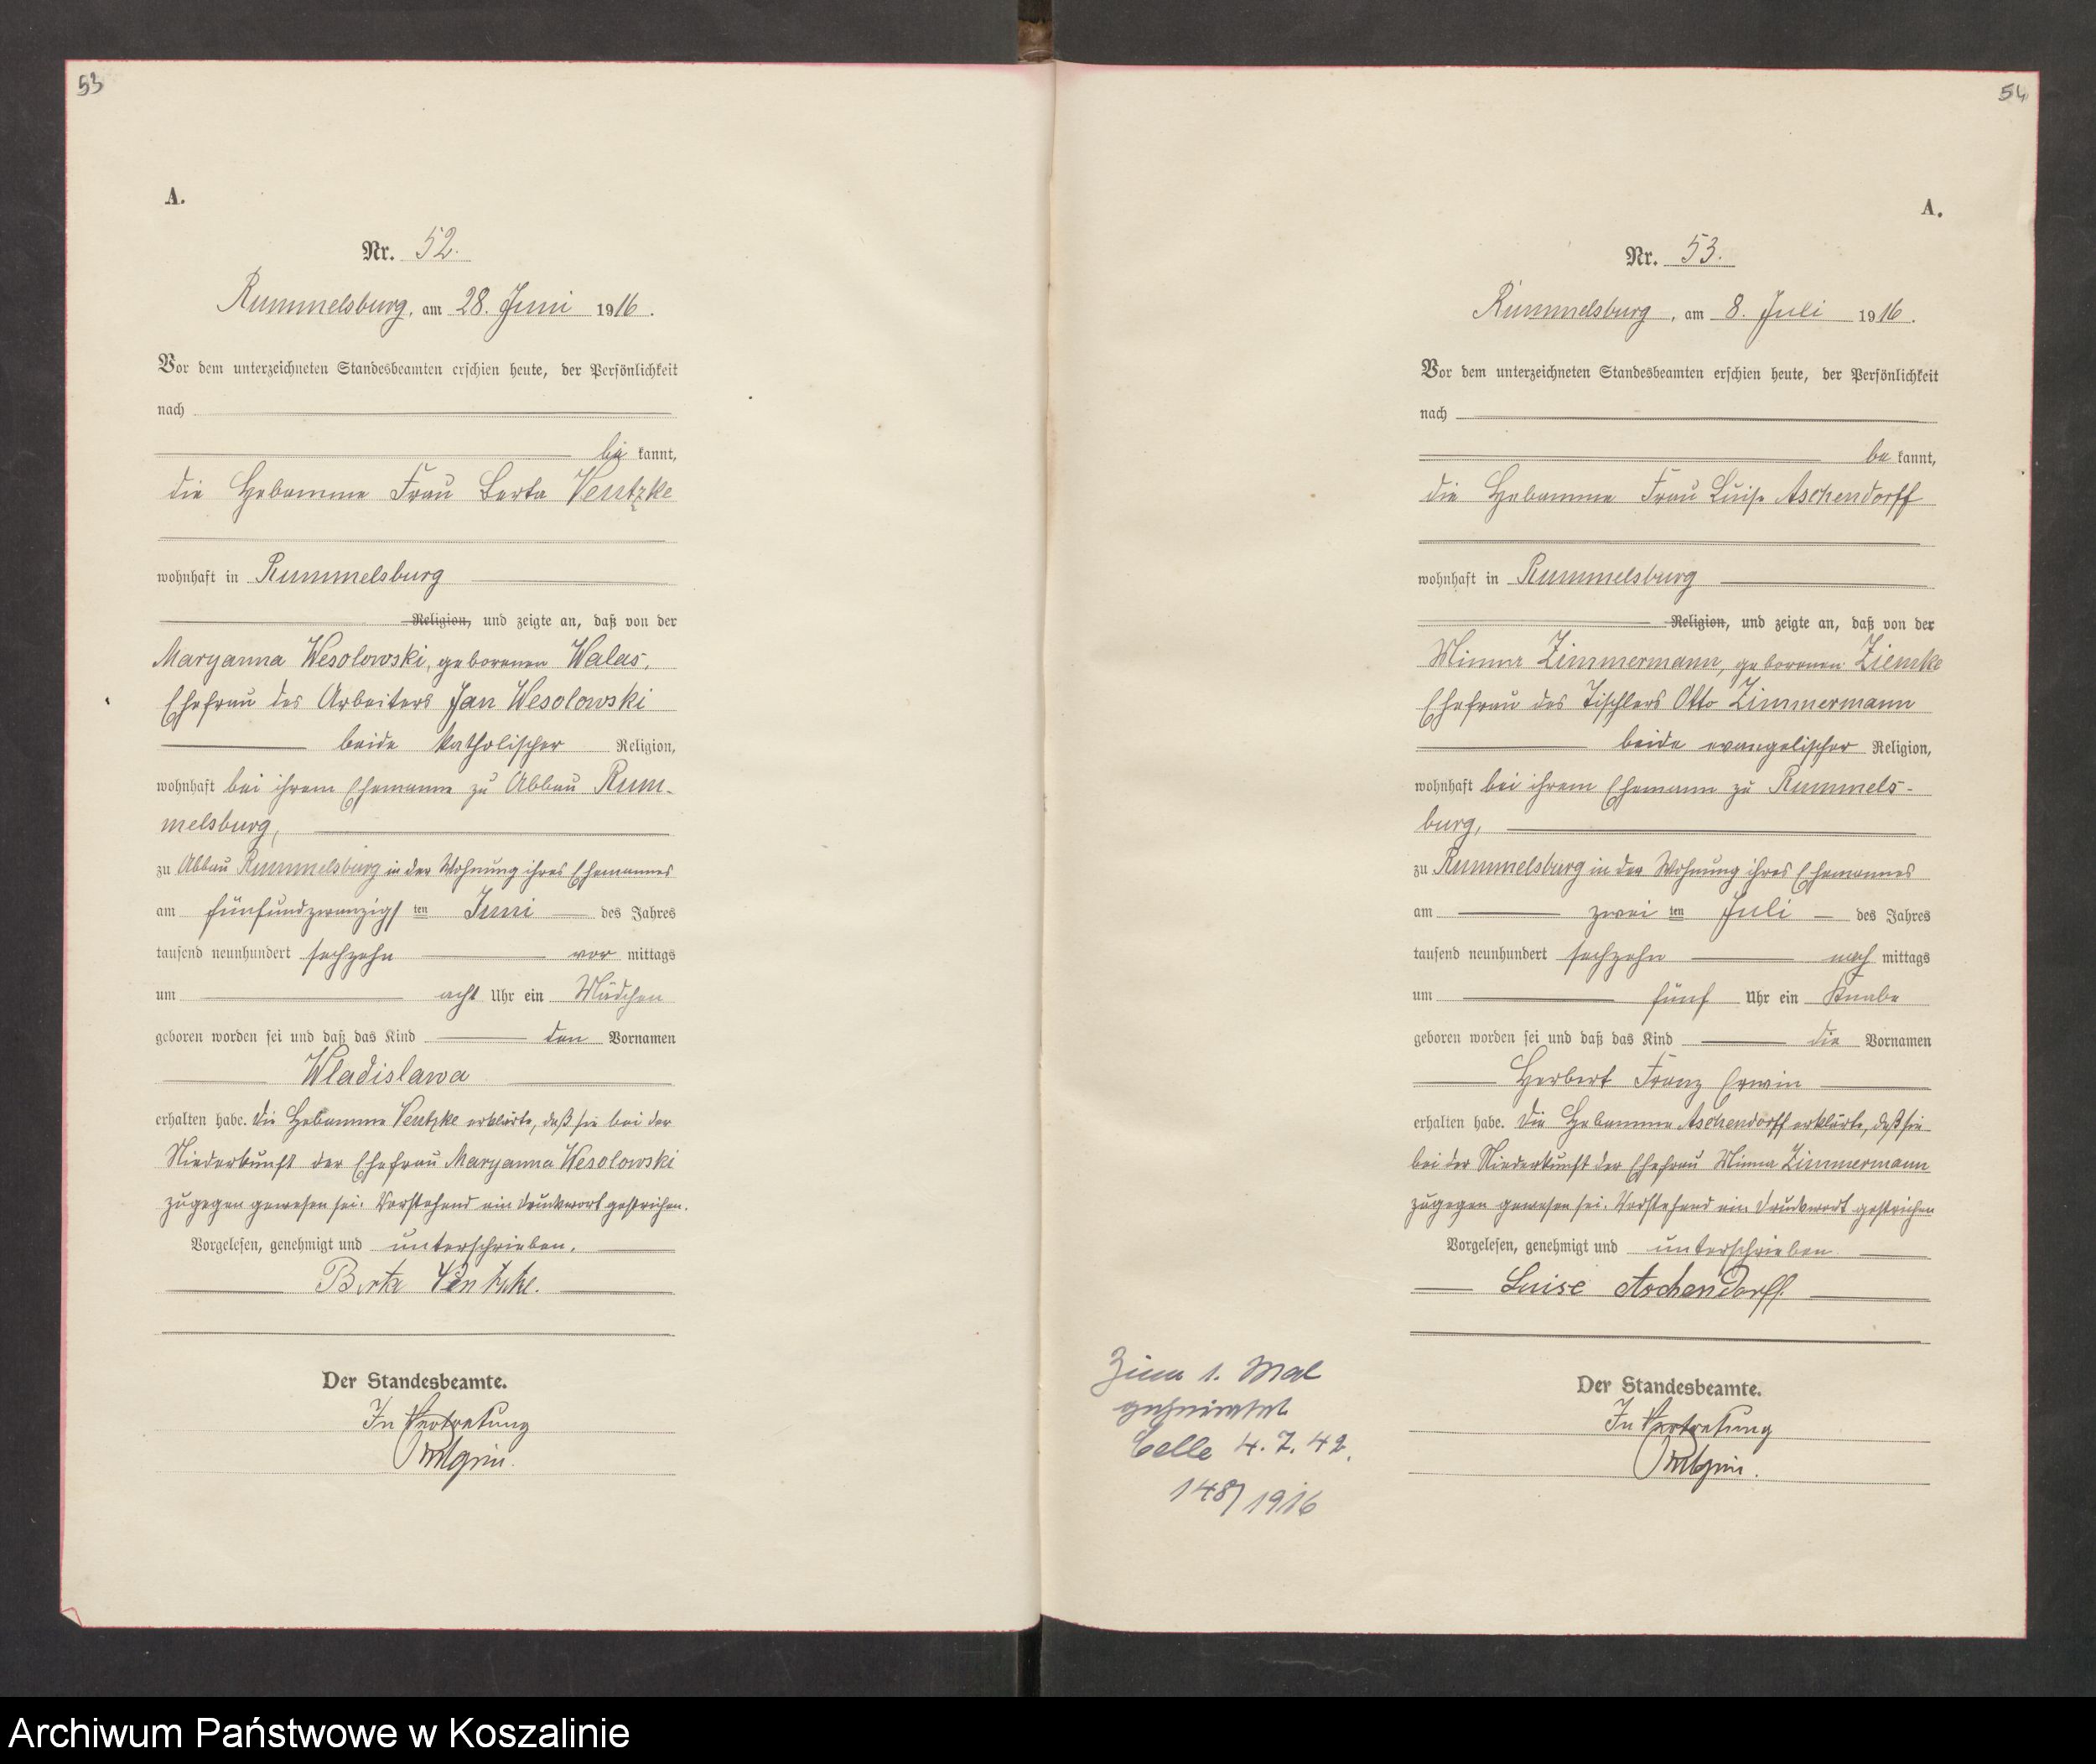 53
A.
Nr. 52.
Rummelsburg, am 28. Juni 1916.
Vor dem unterzeichneten Standesbeamten erschien heute, der Persönlichkeit
nach
be kannt,
die Hebamme Frau Berta Ventzke
wohnhaft in Rummelsburg
Religion, und zeigte an, daß von der
Maryanna Wesolowski, geborenen Walas,
Ehefrau des Arbeiters Jan Wesolowski
beide katholischer Religion,
wohnhaft bei ihrem Ehemann zu Abbau Rum-
melsburg,
zu Abbau Rummelsburg in der Wohnung ihres Ehemannes
am fünfundzwanzigs ten Juni des Jahres
tausend neunhundert sechzehn vor mittags
um acht Uhr ein Mädchen
geboren worden sei und daß das Kind den Vornamen
Wladislawa
erhalten habe. Die Hebamme Ventzke erklärte, daß sie bei der
Niederkunft der Ehefrau Maryanna Wesolowski
zugegen gewesen sei. Vorstehend ein Druckwort gestrichen.
Vorgelesen, genehmigt und unterschrieben.
Berta Ventzke.
Der Standesbeamte.
In Vertretung
54
A.
Nr. 53.
Rummelsburg, am 8. Juli 1916.
Vor dem unterzeichneten Standesbeamten erschien heute, der Persönlichkeit
nach
be kannt,
die Hebamme Frau Luise Aschendorff
wohnhaft in Rummelsburg
Religion, und zeigte an, daß von der
Minna Zimmermann, geborenen Ziemke
Ehefrau des Tischlers Otto Zimmermann
beide evangelischer Religion,
wohnhaft bei ihrem Ehemann zu Rummels-
burg,
zu Rummelsburg in der Wohnung ihres Ehemannes
am zwei ten Juli des Jahres
tausend neunhundert sechzehn nach mittags
um fünf Uhr ein Knabe
geboren worden sei und daß das Kind die Vornamen
Herbert Franz Erwin
erhalten habe. Die Hebamme Aschendorff erklärte, daß sie
bei der Niederkunft der Ehefrau Minna Zimmermann
zugegen gewesen sei. Vorstehend ein Druckwort gestrichen
Vorgelesen, genehmigt und unterschrieben
Luise Aschendorff.
Der Standesbeamte.
In Vertretung
Zum 1. Mal
geheiratet
Celle 4.7.42.
148/1916
Archiwum Państwowe w Koszalinie